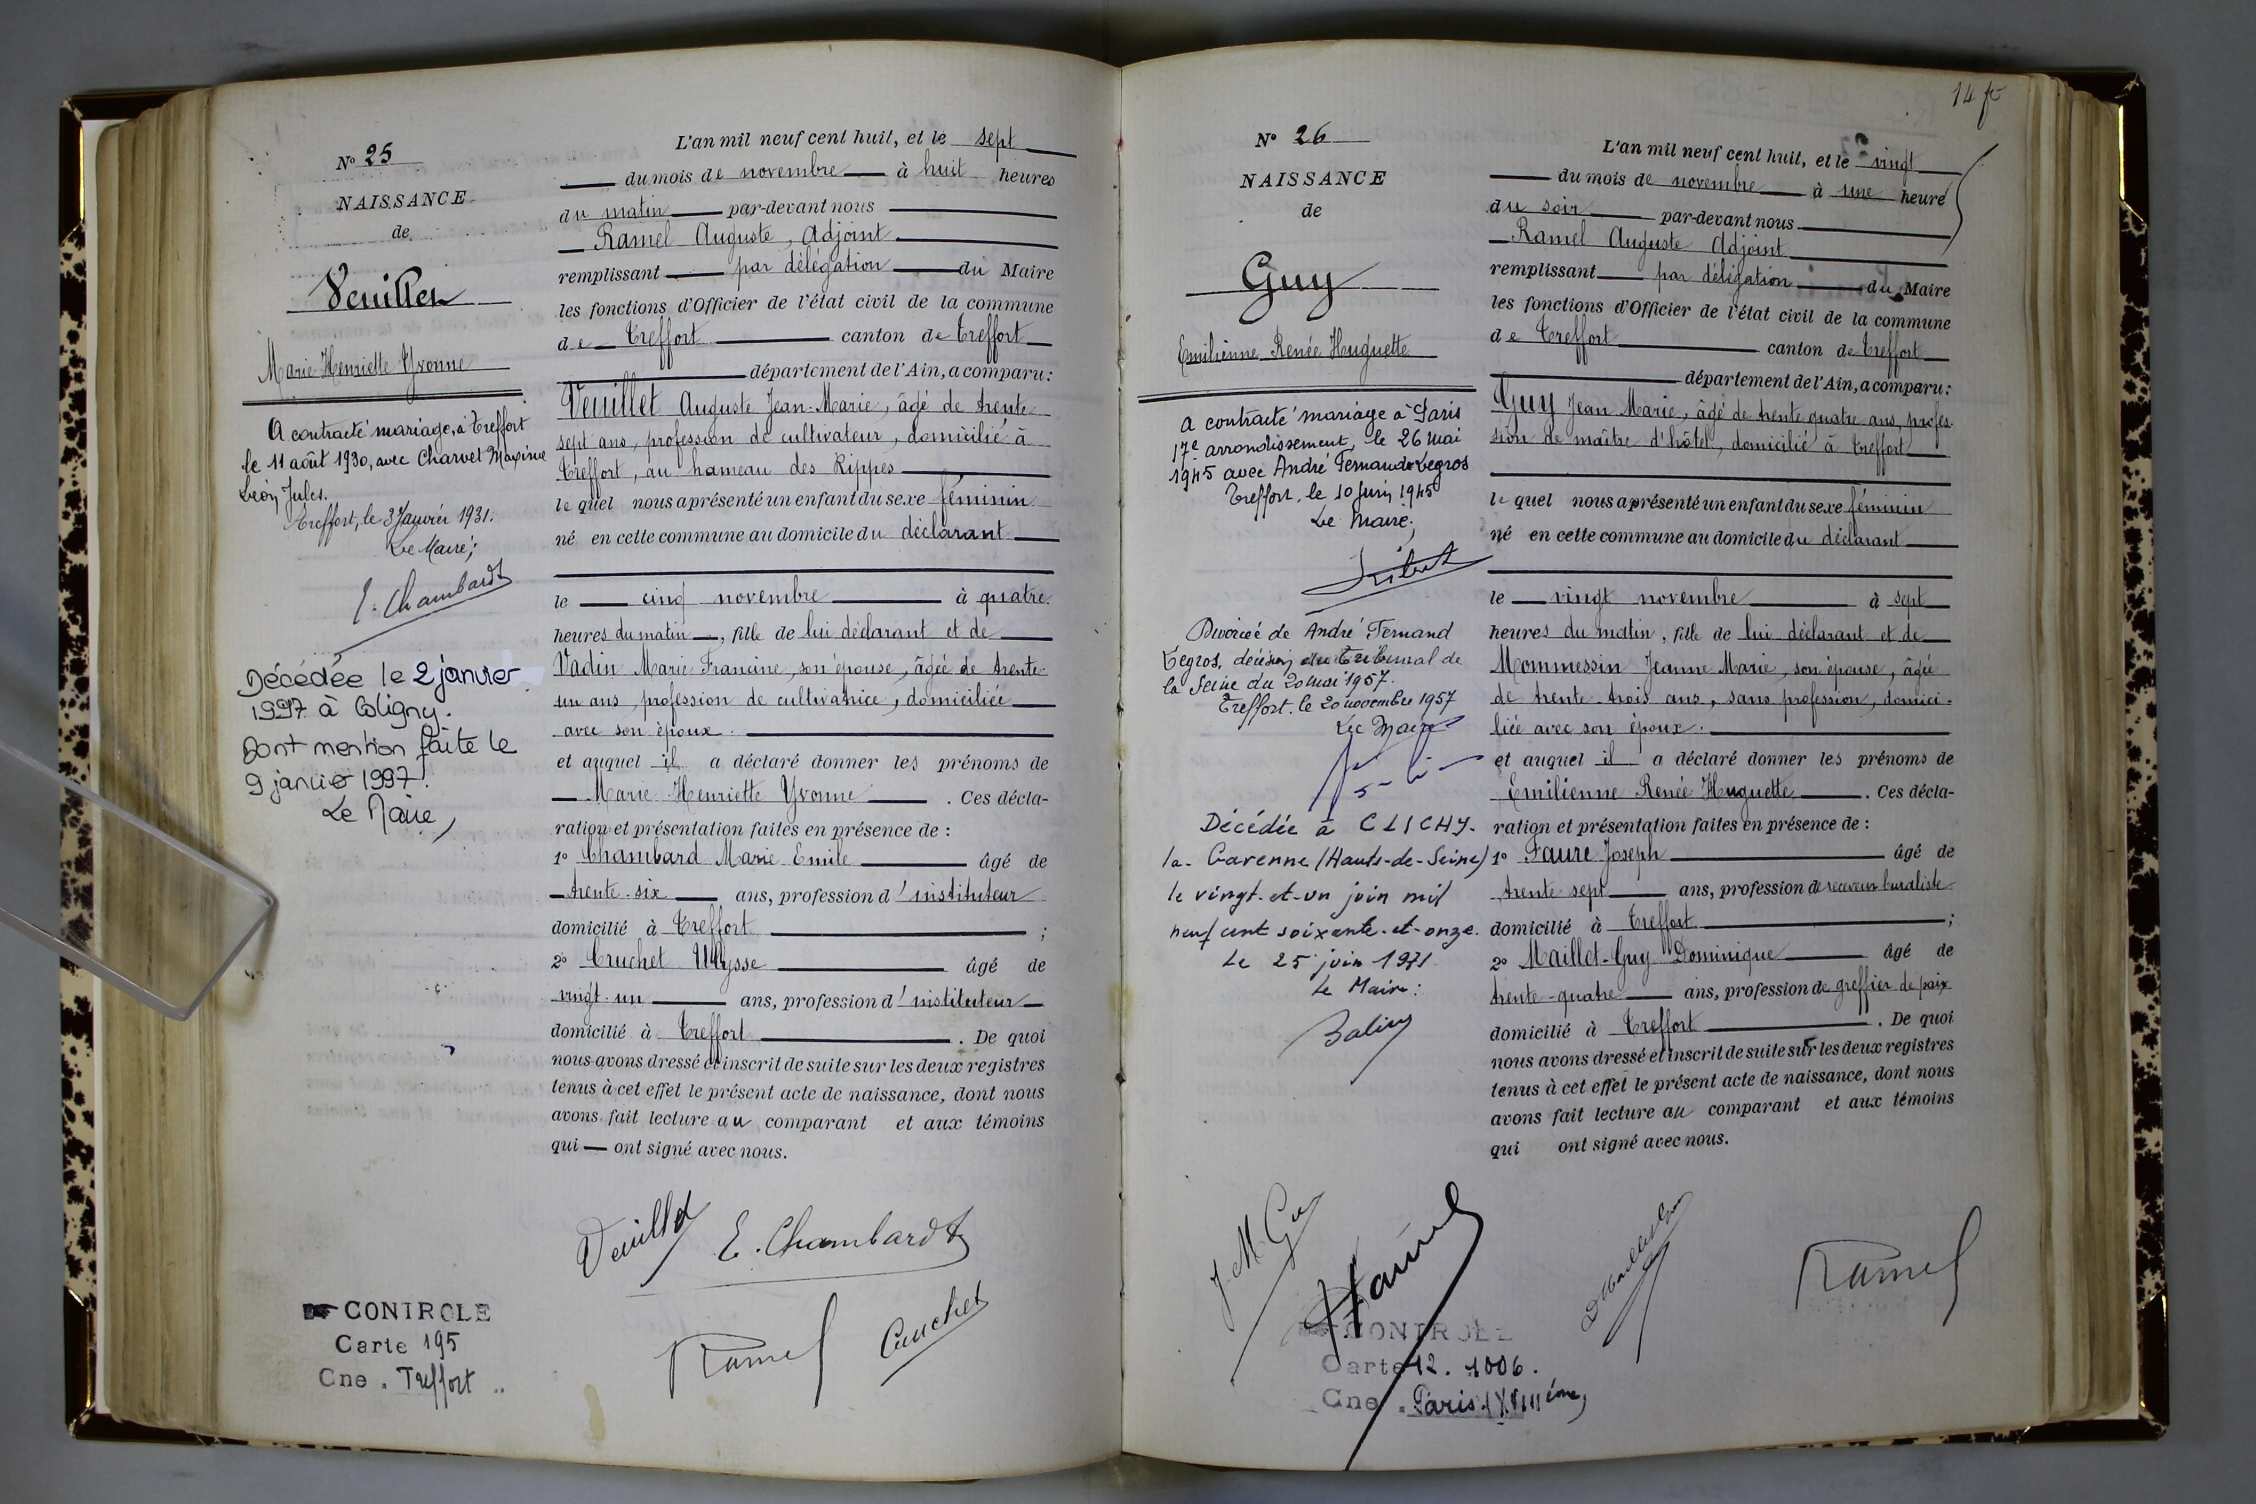 N° 25
NAISSANCE
de
Veuillet
Marie Henriette Yvonne
A contracté mariage, à Treffort
le 11 août 1930, avec Charvet Maxime
Léon Jules.
Treffort, le 3 Janvier 1931.
Le Maire;
E. Chambard
Décédée le 2 janvier
1997 à Coligny.
Dont mention faite le
9 janvier 1997.
Le Maire,
CONTROLE
Carte 195
Cne. Treffort
L'an mil neuf cent huit, et le sept
du mois de novembre à huit heures
du matin par-devant nous
Ramel Auguste, Adjoint
remplissant par délégation du Maire
les fonctions d'Officier de l'état civil de la commune
de Treffort canton de Treffort
département de l'Ain, a comparu:
Veuillet Auguste Jean-Marie, âgé de trente
sept ans, profession de cultivateur, domicilié à
Treffort, au hameau des Rippes
le quel nous a présenté un enfant du sexe féminin
né en cette commune au domicile du déclarant
le cinq novembre à quatre
heures du matin, fille de lui déclarant et de
Vadin Marie Francine, son épouse, âgée de trente
un ans, profession de cultivatrice, domiciliée
avec son époux.
et auquel il a déclaré donner les prénoms de
Marie Henriette Yvonne. Ces décla-
ration et présentation faites en présence de :
1° Chambard Marie Emile âgé de
trente-six ans, profession d'instituteur
domicilié à Treffort ;
2° Cruchet Ulysse âgé de
vingt-un ans, profession d'instituteur
domicilié à Treffort. De quoi
nous avons dressé et inscrit de suite sur les deux registres
tenus à cet effet le présent acte de naissance, dont nous
avons fait lecture au comparant et aux témoins
qui ont signé avec nous.
Veuillet E. Chambard
Ramel Cruchet
14 fo
N° 26
NAISSANCE
de
Guy
Emilienne Renée Huguette
A contracté mariage à Paris
17e arrondissement, le 26 mai
1945 avec André Fernand Legros
Treffort, le 10 Juin 1945
Le Maire;
Divorcée de André Fernand
Legros, décision du Tribunal de
la Seine du 20 mai 1957.
Treffort. le 20 novembre 1957
Le Maire
Décédée à CLICHY-
la-Garenne (Hauts-de-Seine)
le vingt-et-un juin mil
neuf cent soixante-et-onze.
Le 25 juin 1971
Le Maire:
CONTROLE
Carte 12. 1006.
Cne. Paris XVIIIème
L'an mil neuf cent huit, et le vingt
du mois de novembre à une heure
du soir par-devant nous
Ramel Auguste Adjoint
remplissant par délégation du Maire
les fonctions d'Officier de l'état civil de la commune
de Treffort canton de Treffort
département de l'Ain, a comparu:
Guy Jean Marie, âgé de trente quatre ans, profes-
sion de maître d'hôtel, domicilié à Treffort
le quel nous a présenté un enfant du sexe féminin
né en cette commune au domicile du déclarant
le vingt novembre à sept
heures du matin, fille de lui déclarant et de
Mommessin Jeanne Marie, son épouse, âgée
de trente-trois ans, sans profession, domici-
liée avec son époux.
et auquel il a déclaré donner les prénoms de
Emilienne Renée Huguette. Ces décla-
ration et présentation faites en présence de :
1° Faure Joseph âgé de
trente sept ans, profession de receveur buraliste
domicilié à Treffort ;
2° Maillet-Guy Dominique âgé de
trente-quatre ans, profession de greffier de paix
domicilié à Treffort. De quoi
nous avons dressé et inscrit de suite sur les deux registres
tenus à cet effet le présent acte de naissance, dont nous
avons fait lecture au comparant et aux témoins
qui ont signé avec nous.
J. M. Guy Faure D Maillet Guy Ramel